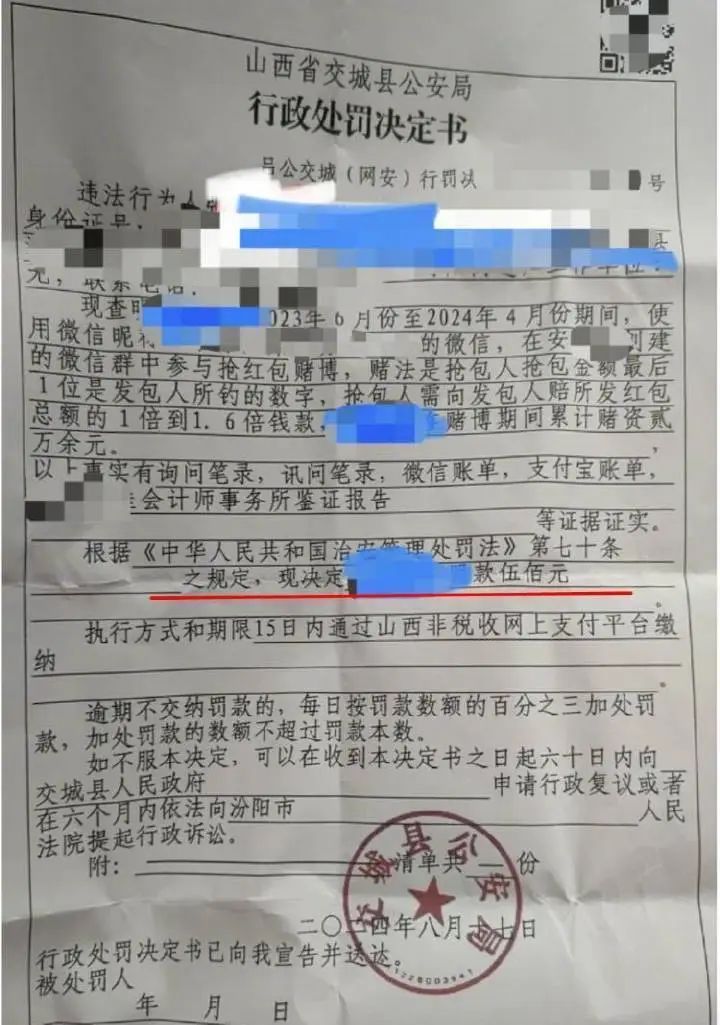 山西省交城县公安局
行政处罚决定书
吕公交城（网安）行罚决 号
违法行为人
身份证号：
元，联系电话： 工作单位：
现查明 2023年6月份至2024年4月份期间，使
用微信昵称 的微信，在安 创建
的微信群中参与抢红包赌博，赌法是抢包人抢包金额最后
1位是发包人所钓的数字，抢包人需向发包人赔所发红包
总额的1倍到1.6倍钱款， 在赌博期间累计赌资贰
万余元。
以上事实有询问笔录，讯问笔录，微信账单，支付宝账单，
会计师事务所鉴证报告
等证据证实。
根据《中华人民共和国治安管理处罚法》第七十条
之规定，现决定 罚款伍佰元
。
执行方式和期限15日内通过山西非税收网上支付平台缴
纳
逾期不交纳罚款的，每日按罚款数额的百分之三加处罚
款，加处罚款的数额不超过罚款本数。
如不服本决定，可以在收到本决定书之日起六十日内向
交城县人民政府 申请行政复议或者
在六个月内依法向汾阳市 人民
法院提起行政诉讼。
附： 清单共 份
交城县公安局
二〇二四年八月 七日
行政处罚决定书已向我宣告并送达。
被处罚人
年 月 日